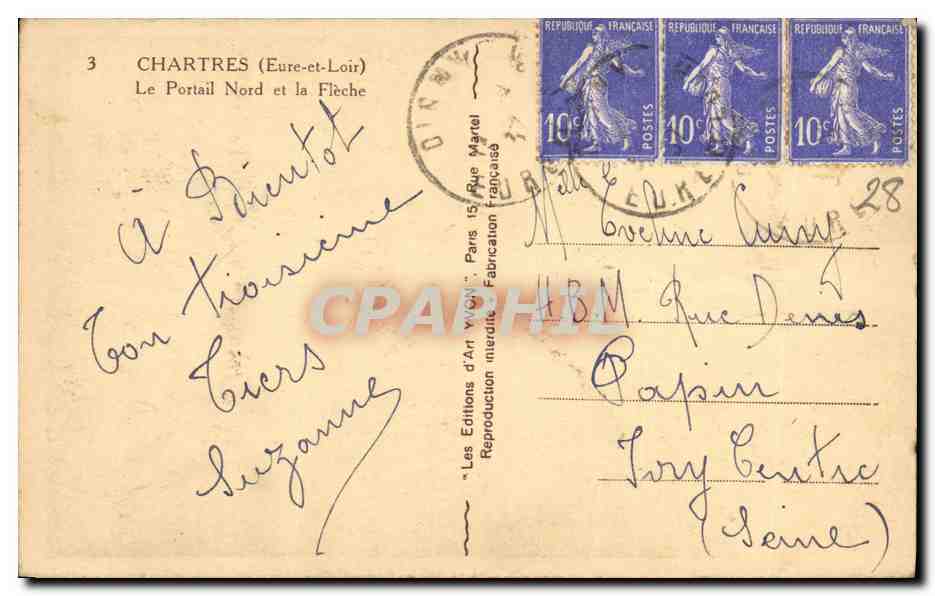 3 CHARTRES (Eure-et-Loir)
Le Portail Nord et la Flèche
À Bientot
Ton troisieme
Tiers
Suzanne
"Les Editions d'Art YVON", Paris 15, Rue Martel
Reproduction interdite - Fabrication Française
REPUBLIQUE FRANÇAISE
10c POSTES
REPUBLIQUE FRANÇAISE
10c POSTES
REPUBLIQUE FRANÇAISE
10c POSTES
28
Melle Eveline
H.B.M. Rue Denis
Papin
Ivry Centre
(Seine)
CPARPHIL